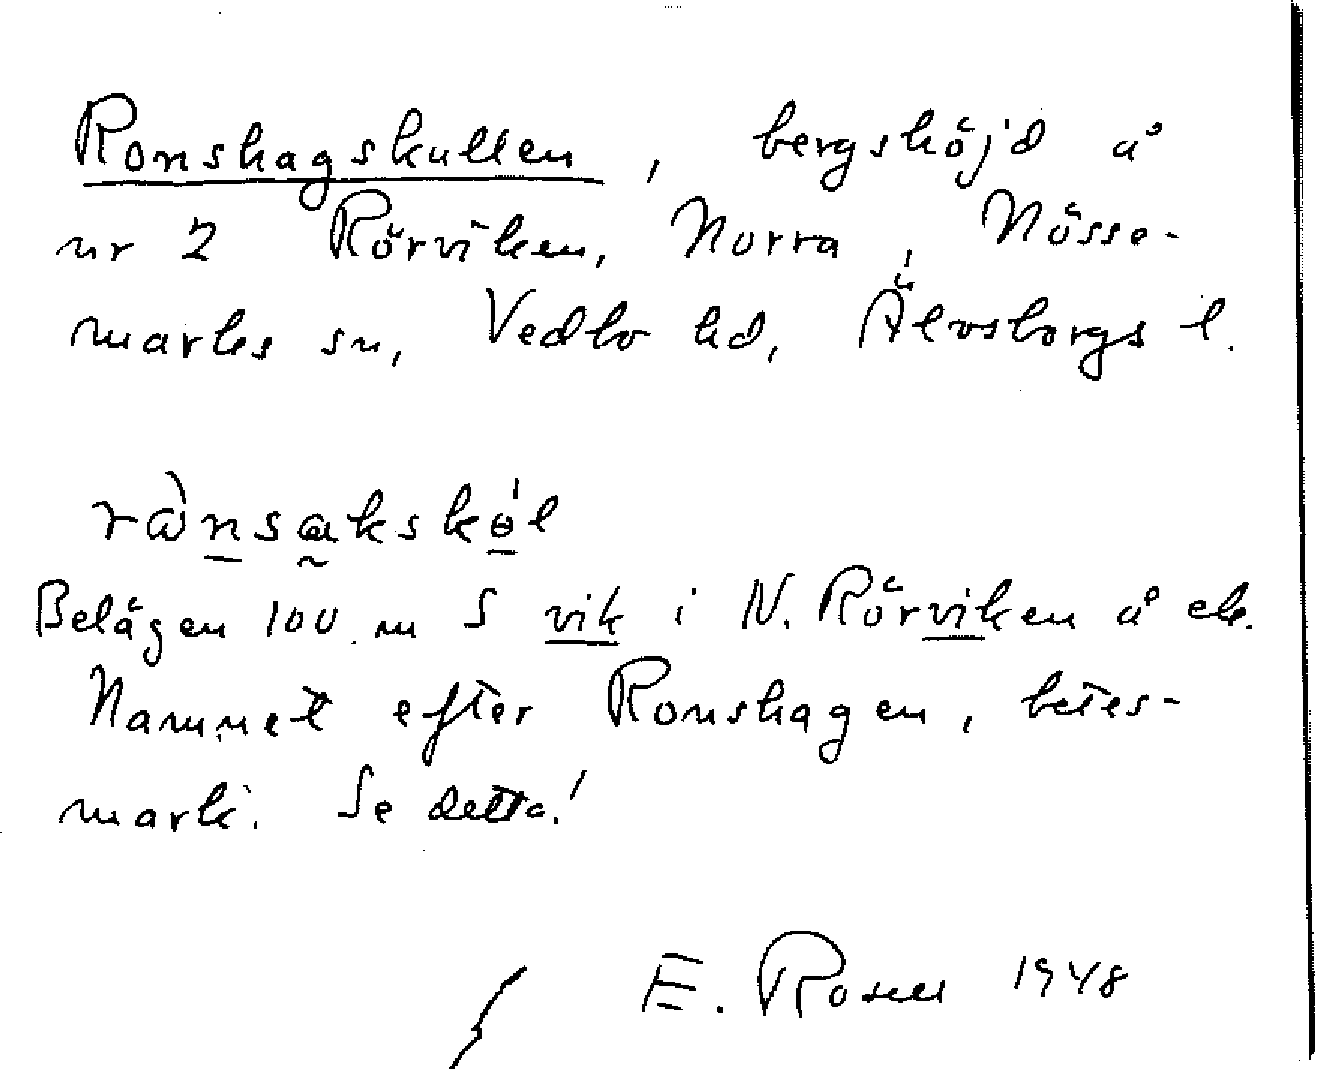 Ronshagskullen, bergshöjd å
nr 2 Rörviken, Norra, Nösse-
marks sn, Vedbo hd, Älvsborgs l.
rånsakskøl
Belägen 100 m S vik i N. Rörviken å ek.
Namnet efter Ronshagen, betes-
mark. Se detta!
E. Rosell 1948